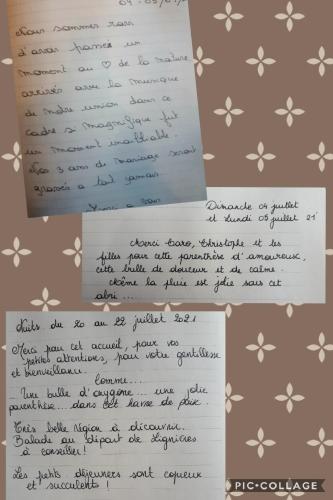 04-05/07/
Nous sommes ravis
d'avoir passée un
moment au ♡ de la nature
arrivés avec la musique
de notre union dans ce
cadre si magnifique fut
un moment inoubliable.
Nos 3 ans de mariage seront
gravés a tout jamais
Merci a
Dimanche 04 juillet
et Lundi 05 juillet 21
Merci Caro, Christophe et les
filles pour cette parenthèse d'amoureux,
cette bulle de douceur et de calme.
Même la pluie est jolie sous cet
abri...
Nuits du 20 au 22 juillet 2021
Merci pour cet accueil, pour vos
petites attentions, pour votre gentillesse
et bienveillance.
Comme...
Une bulle d'oxygène... une jolie
parenthèse.... dans cet havre de paix.
Très belle région à découvrir.
Balade au départ de Lignières
à conseiller!
Les petits déjeuners sont copieux
et succulents!
PIC•COLLAGE